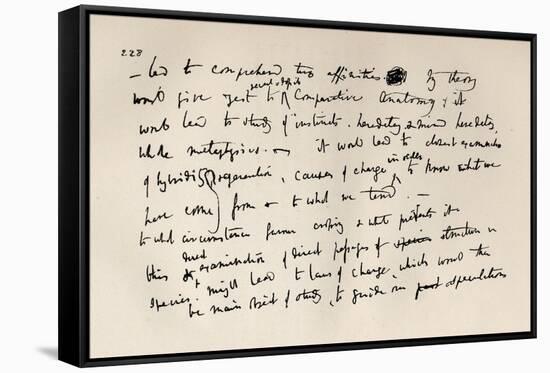 228
– led to comprehend true affinities My theory
would give zest to recent & fossil Comparative Anatomy, & it
would lead to study of instincts, heredetary & mind heredetary,
whole metaphysics. – it would lead to closest examination
of hybridity, regeneration, causes of change in order to know what we
have come from & to what we tend. –
to what circumstances favour crossing & what prevents it
this & direct examination of direct passages of species structure in
species, might lead to laws of change, which would then
be main object of study, to guide our past speculations